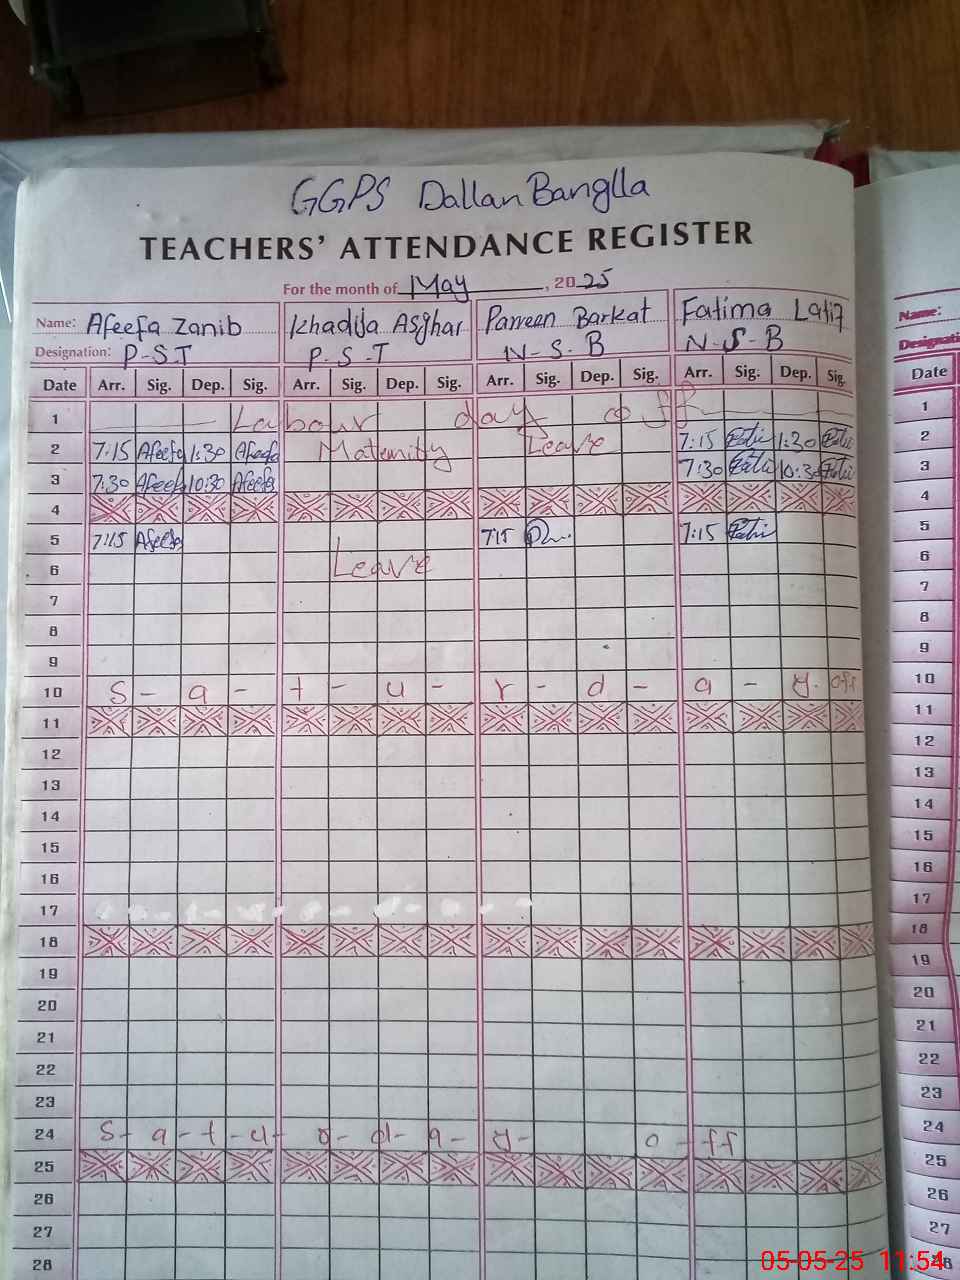 GGPS Dallan Banglla
TEACHERS' ATTENDANCE REGISTER
For the month of May, 2025
Name: Afeefa Zanib Khadija Asghar Parveen Barkat Fatima Latif Name:
Designation: P-S.T P-S-T N-S-B N-S-B
Date Arr. Sig. Dep. Sig. Arr. Sig. Dep. Sig. Arr. Sig. Dep. Sig. Arr. Sig. Dep. Sig. Date
1 Labour day off 1
2 7:15 Afeefa 1:30 Afeefa Maternity Leave 7:15 1:30 2
3 7:30 Afeefa 10:30 Afeefa 7:30 10:30 3
4 4
5 7:15 Afeefa 7:15 7:15 5
6 Leave 6
7 7
8 8
9 9
10 S - a - t - u - r - d - a - y. off 10
11 11
12 12
13 13
14 14
15 15
16 16
17 17
18 18
19 19
20 20
21 21
22 22
23 23
24 S - a - t - u - r - d - a - y - o - ff 24
25 25
26 26
27 27
28 28
05-05-25 11:54